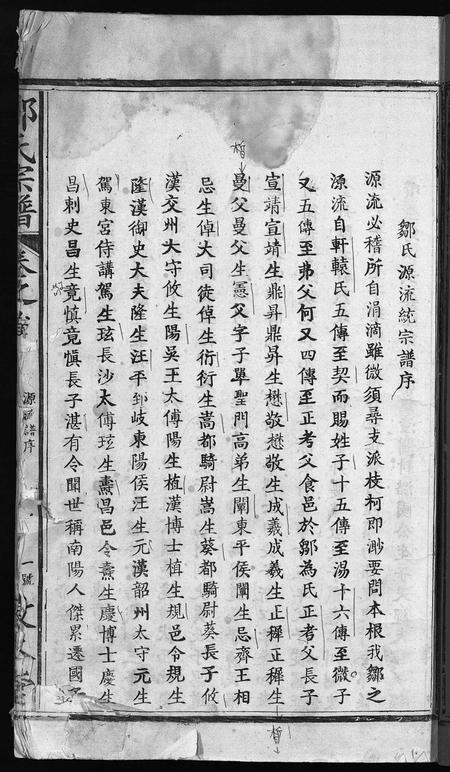 鄒氏源流統宗譜序
源流必稽所自涓滴雖微須尋支派枝柯即渺要問本根我鄒之
源流自軒轅氏五傳至契而賜姓子十五傳至湯十六傳至微子
又五傳至弗父何又四傳至正考父食邑於鄒為氏正考父長子
宣靖宣靖生鼎昇鼎昇生懋敬懋敬生成羲成羲生正穉正穉生
曼父曼父生憲父字子單聖門高弟生闡東平侯闡生忌齊王相
忌生倬大司徒倬生衍衍生嵩都騎尉嵩生葵都騎尉葵長子攸
漢交州大守攸生陽吳王太傅陽生植漢博士植生規邑令規生
隆漢御史大夫隆生汪平到岐東陽侯汪生元漢韶州太守元生
駕東宮侍講駕生玹長沙太傅玹生燾昌邑令燾生慶博士慶生
昌刺史昌生竟慎竟慎長子湛有令聞世稱南陽人傑累遷國
鄒氏宗譜
卷之首
源流譜序
一號